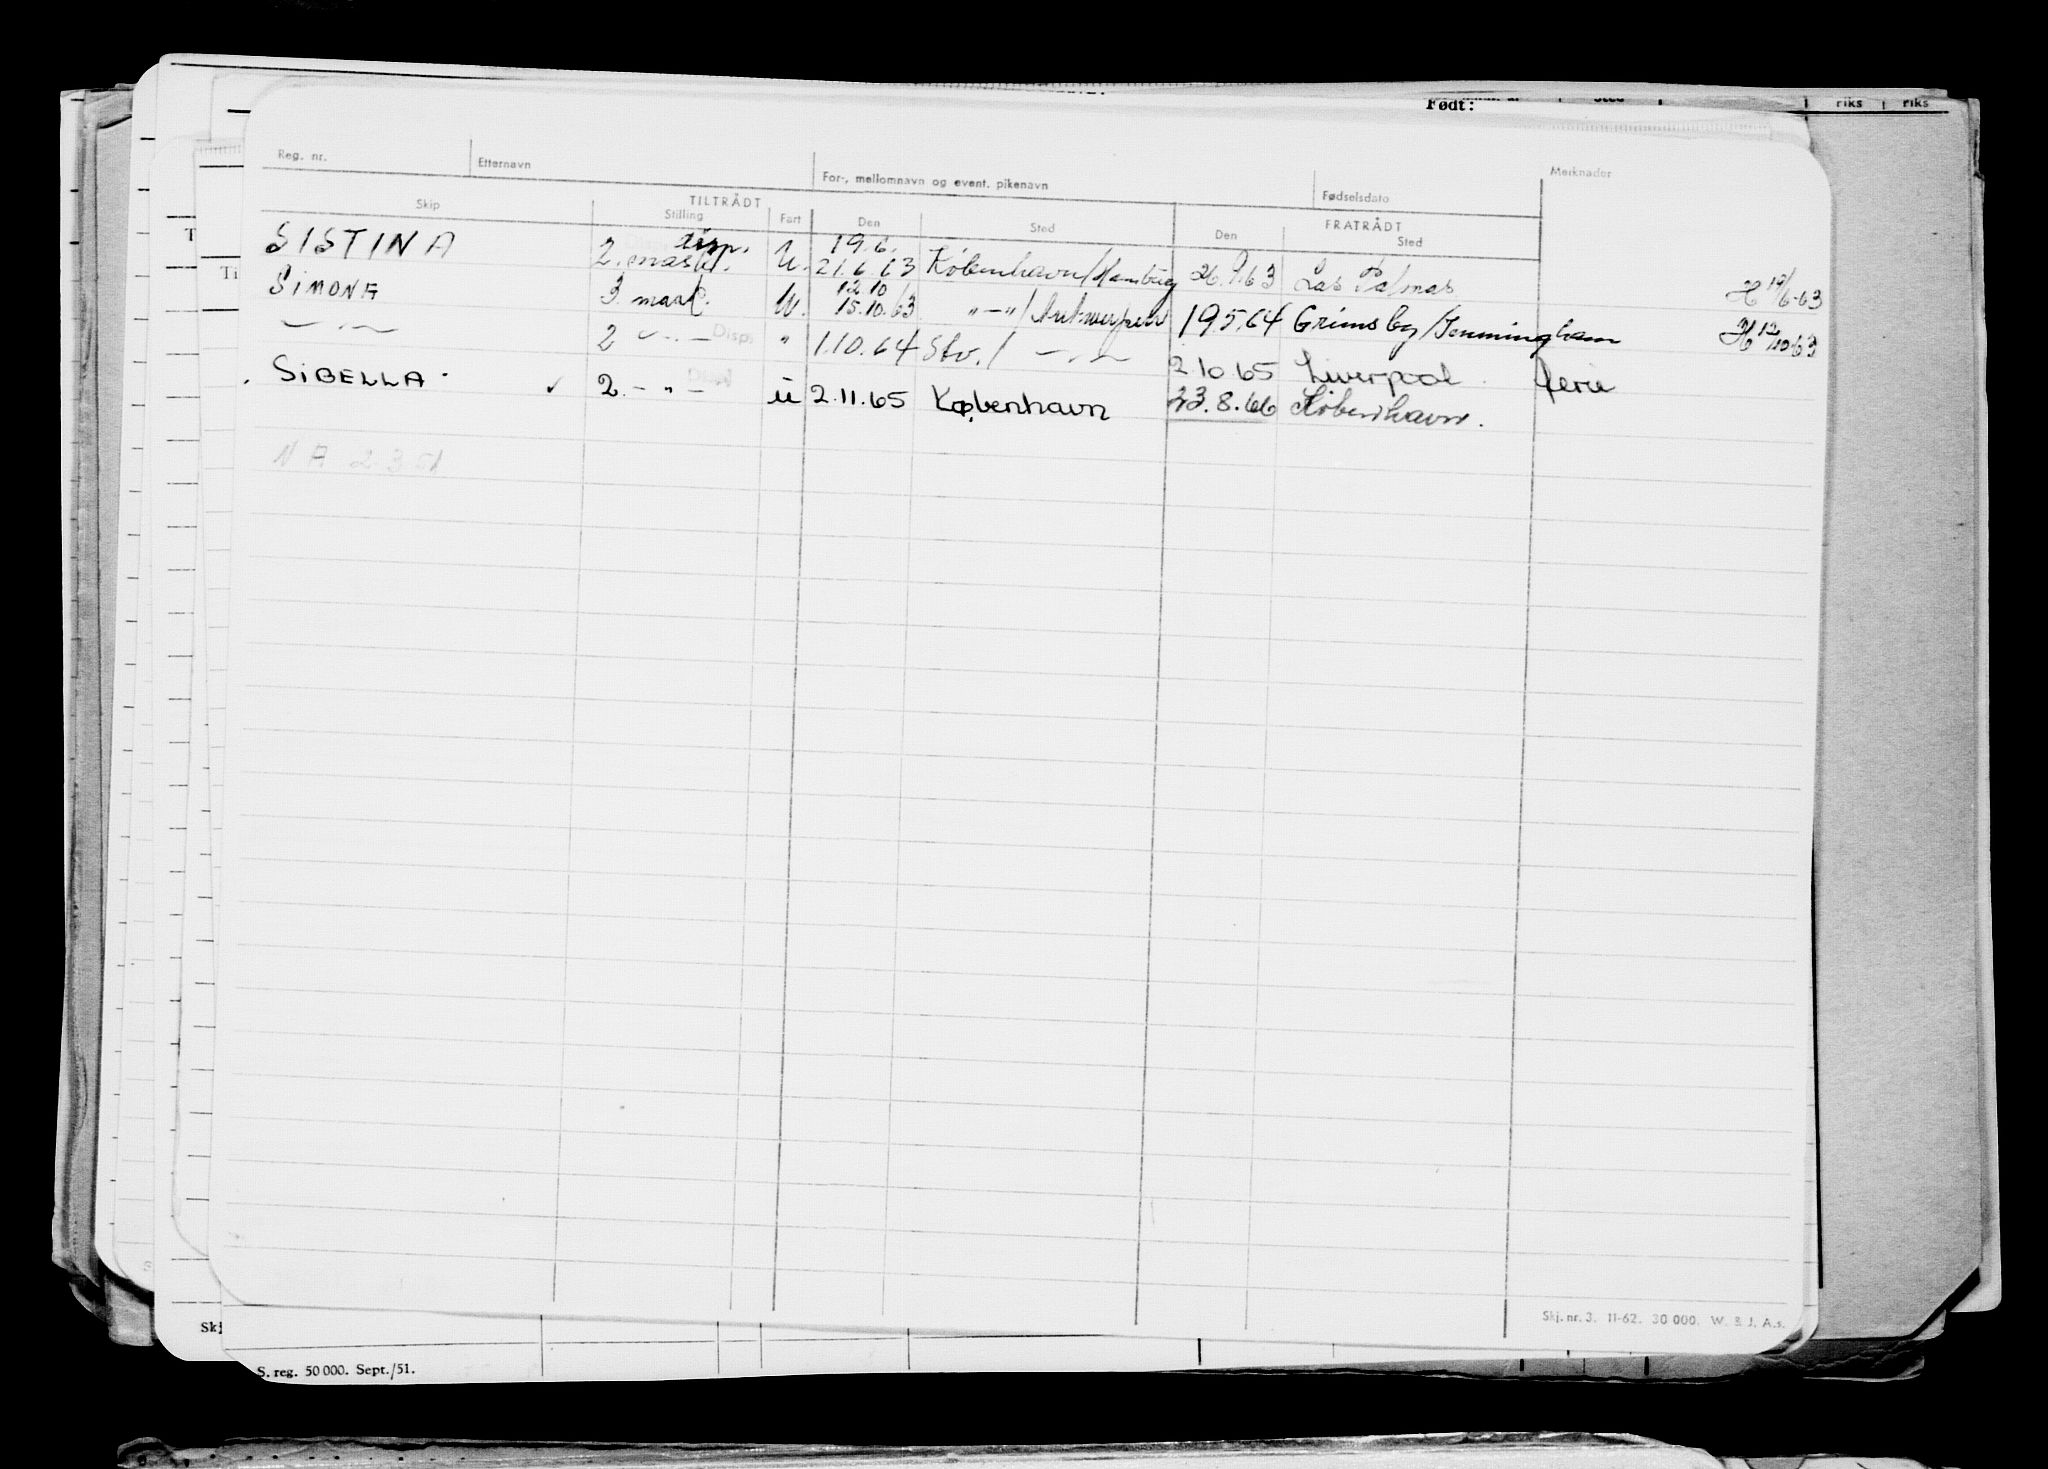 Født:
riks riks
Reg. nr. Etternavn For-, mellomnavn og event. pikenavn Fødselsdato Merknader
TILTRÅDT FRATRÅDT
Skip Stilling Fart Den Sted Den Sted
SISTINA 2. mask. disp. U. 19.6. 21.6.63 København/Hamburg 26.9.63 Las Palmas H 19/6-63
SIMONA 3. mask. U. 12.10 15.10.63 "-"/Antwerpen 19.5.64 Grimsby/Immingham H 12/10-63
-"- 2 -"- Disp. " 1.10.64 Stv./ -"- 2.10.65 Liverpool. ferie
SIBELLA. 2. -"- Disp. u 2.11.65 København 23.8.66 København.
NA 2 3 51
Skj. nr. 3. 11-62. 30 000. W. & J. A.s.
Skj
S. reg. 50 000. Sept./51.